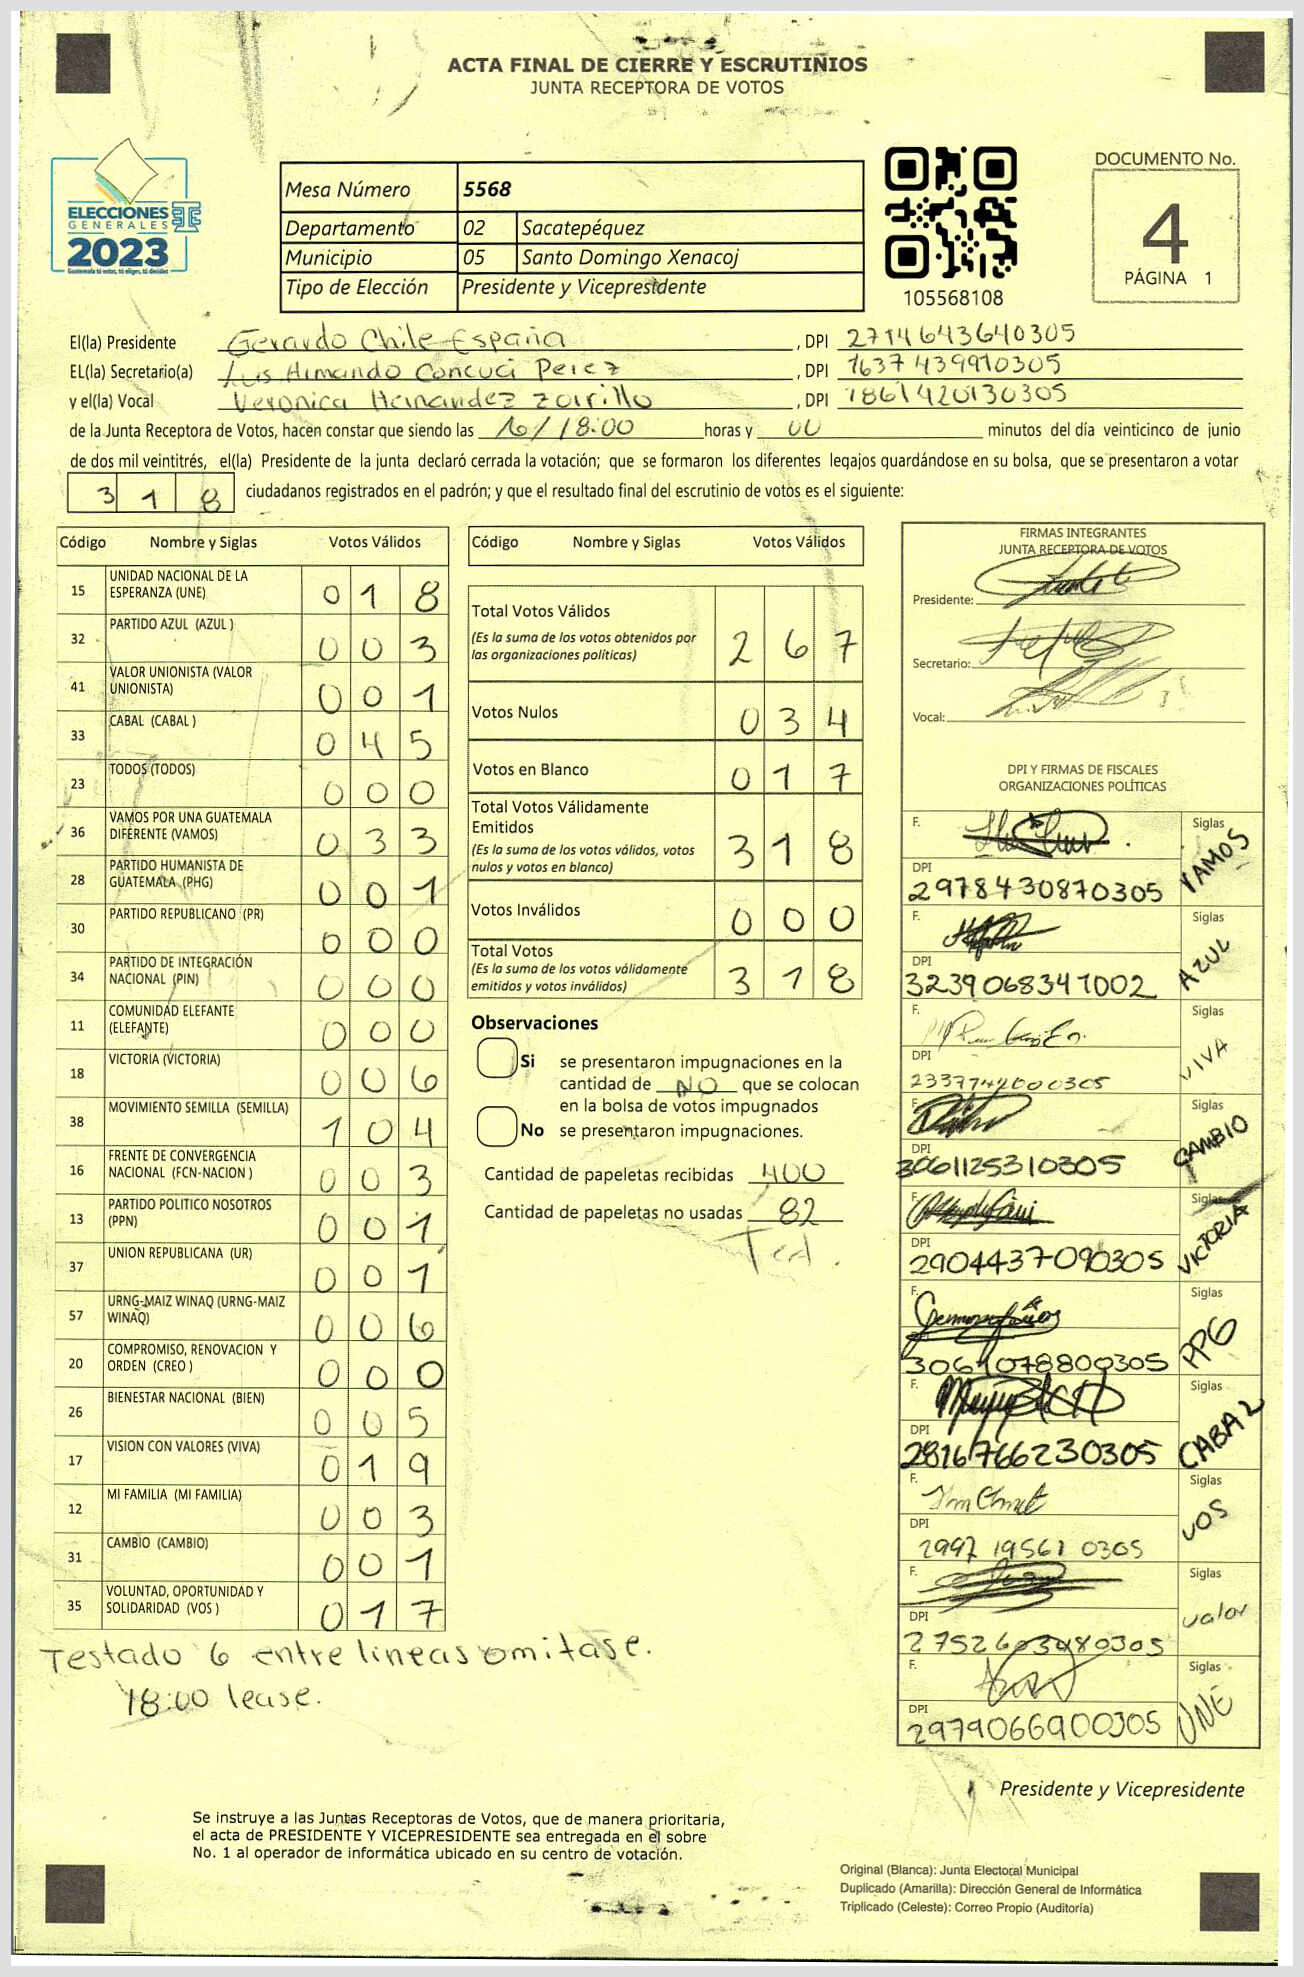 ACTA FINAL DE CIERRE Y ESCRUTINIOS
JUNTA RECEPTORA DE VOTOS
ELECCIONES
GENERALES
2023
Guatemala tú votas, tú eliges, tú decides
Mesa Número 5568
Departamento 02 Sacatepéquez
Municipio 05 Santo Domingo Xenacoj
Tipo de Elección Presidente y Vicepresidente
105568108
DOCUMENTO No.
4
PÁGINA 1
El(la) Presidente Gerardo Chile España, DPI 2714643640305
EL(la) Secretario(a) Luis Armando Concuá Perez, DPI 1637439910305
y el(la) Vocal Veronica Hernandez, DPI 1861420130305
de la Junta Receptora de Votos, hacen constar que siendo las 16/18:00 horas y 00 minutos del día veinticinco de junio
de dos mil veintitrés, el(la) Presidente de la junta declaró cerrada la votación; que se formaron los diferentes legajos guardándose en su bolsa, que se presentaron a votar
318 ciudadanos registrados en el padrón; y que el resultado final del escrutinio de votos es el siguiente:
Código Nombre y Siglas Votos Válidos
15 UNIDAD NACIONAL DE LA ESPERANZA (UNE) 018
32 PARTIDO AZUL (AZUL ) 003
41 VALOR UNIONISTA (VALOR UNIONISTA) 001
33 CABAL (CABAL ) 045
23 TODOS (TODOS) 000
36 VAMOS POR UNA GUATEMALA DIFERENTE (VAMOS) 033
28 PARTIDO HUMANISTA DE GUATEMALA (PHG) 001
30 PARTIDO REPUBLICANO (PR) 000
34 PARTIDO DE INTEGRACIÓN NACIONAL (PIN) 000
11 COMUNIDAD ELEFANTE (ELEFANTE) 000
18 VICTORIA (VICTORIA) 006
38 MOVIMIENTO SEMILLA (SEMILLA) 104
16 FRENTE DE CONVERGENCIA NACIONAL (FCN-NACION ) 003
13 PARTIDO POLITICO NOSOTROS (PPN) 001
37 UNION REPUBLICANA (UR) 001
57 URNG-MAIZ WINAQ (URNG-MAIZ WINAQ) 006
20 COMPROMISO, RENOVACION Y ORDEN (CREO ) 000
26 BIENESTAR NACIONAL (BIEN) 005
17 VISION CON VALORES (VIVA) 019
12 MI FAMILIA (MI FAMILIA) 003
31 CAMBIO (CAMBIO) 001
35 VOLUNTAD, OPORTUNIDAD Y SOLIDARIDAD (VOS ) 017
Testado 6 entre lineas omitase.
18:00 lease.
Código Nombre y Siglas Votos Válidos
Total Votos Válidos 267
(Es la suma de los votos obtenidos por
las organizaciones políticas)
Votos Nulos 034
Votos en Blanco 017
Total Votos Válidamente
Emitidos 318
(Es la suma de los votos válidos, votos
nulos y votos en blanco)
Votos Inválidos 000
Total Votos 318
(Es la suma de los votos válidamente
emitidos y votos inválidos)
Observaciones
Si se presentaron impugnaciones en la
cantidad de NO que se colocan
en la bolsa de votos impugnados
No se presentaron impugnaciones.
Cantidad de papeletas recibidas 400
Cantidad de papeletas no usadas 82
FIRMAS INTEGRANTES
JUNTA RECEPTORA DE VOTOS
Presidente:
Secretario:
Vocal:
DPI Y FIRMAS DE FISCALES
ORGANIZACIONES POLÍTICAS
F. Siglas VAMOS
DPI 2978430870305
F. Siglas AZUL
DPI 3239068341002
F. Siglas VIVA
DPI
F. Siglas CAMBIO
DPI 3061125310305
F. Siglas VICTORIA
DPI 2904437090305
F. Siglas PPG
3061078800305
F. Siglas CABAL
DPI 2816766230305
F. Siglas VOS
DPI 2997 19561 0305
F. Siglas valor
DPI 2752603480305
F. Siglas UNE
DPI 2979066900305
Presidente y Vicepresidente
Se instruye a las Juntas Receptoras de Votos, que de manera prioritaria,
el acta de PRESIDENTE Y VICEPRESIDENTE sea entregada en el sobre
No. 1 al operador de informática ubicado en su centro de votación.
Original (Blanca): Junta Electoral Municipal
Duplicado (Amarilla): Dirección General de Informática
Triplicado (Celeste): Correo Propio (Auditoría)